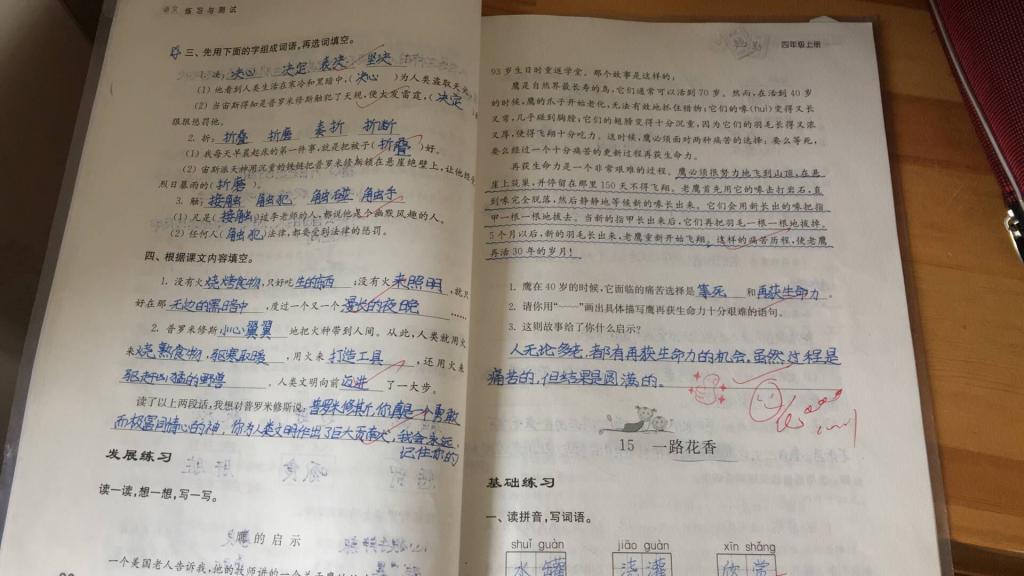 语文 练习与测试
三、先用下面的字组成词语,再选词填空。
1. 决:决心 决定 表决 坚决
(1) 他看到人类生活在寒冷和黑暗中,(决心)为人类盗取天火
(2) 当宙斯得知是普罗米修斯触犯了天规,便大发雷霆,(决定
狠狠惩罚他。
2. 折:折叠 折磨 奏折 折断
(1) 我每天早晨起床的第一件事,就是把被子(折叠)好。
(2) 宙斯派天神用沉重的铁链把普罗米修斯锁在悬崖绝壁上,让他经
烈日暴雨的(折磨)。
3. 触:接触 触犯 触碰 触手
(1) 凡是(接触)过李老师的人,都说他是个幽默风趣的人。
(2) 任何人(触犯)法律,都要受到法律的惩罚。
四、根据课文内容填空。
1. 没有火烧烤食物,只好吃生的东西;没有火来照明,就只
好在那无边的黑暗中,度过一个又一个漫长的夜晚……
2. 普罗米修斯小心翼翼地把火种带到人间。从此,人类就用火
来烧熟食物,驱寒取暖,用火来打造工具,还用火来
驱赶凶猛的野兽,人类文明向前迈进了一大步。
读了以上两段话,我想对普罗米修斯说:普罗米修斯,你真是一个勇敢
而极富同情心的神,你为人类文明作出了巨大贡献,我会永远
记住你的
发展练习
读一读,想一想,写一写。
鹰的启示
一个美国老人告诉我,他的老师讲的一个关于鹰的
四年级上册
93 岁生日时重返学堂。那个故事是这样的:
鹰是自然界最长寿的鸟,它们通常可以活到 70 岁。然而,在活到 40 岁
的时候,鹰的爪子开始老化,无法有效地抓住猎物;它们的喙(huì)变得又长
又弯,几乎碰到胸膛;它们的翅膀变得十分沉重,因为它们的羽毛长得又浓
又厚,使得飞翔十分吃力。这时候,鹰必须面对两种痛苦的选择:要么等死,
要么经过一个十分痛苦的更新过程再获生命力。
再获生命力是一个非常艰难的过程。鹰必须很努力地飞到山顶,在悬
崖上筑巢,并停留在那里 150 天不得飞翔。老鹰首先用它的喙去打岩石,直
到喙完全脱落,然后静静地等候新的喙长出来。它们会用新长出的喙把指
甲一根一根地拔去。当新的指甲长出来后,它们再把羽毛一根一根地拔掉。
5 个月以后,新的羽毛长出来,老鹰重新开始飞翔。这样的痛苦历程,使老鹰
再活 30 年的岁月!
1. 鹰在 40 岁的时候,它面临的痛苦选择是等死和再获生命力。
2. 请你用“——”画出具体描写鹰再获生命力十分艰难的语句。
3. 这则故事给了你什么启示?
人无论多老,都有再获生命力的机会,虽然过程是
痛苦的,但结果是圆满的。
15 一路花香
基础练习
一、读拼音,写词语。
shuǐ guàn jiāo guàn xīn shǎng
水罐 浇灌 欣赏